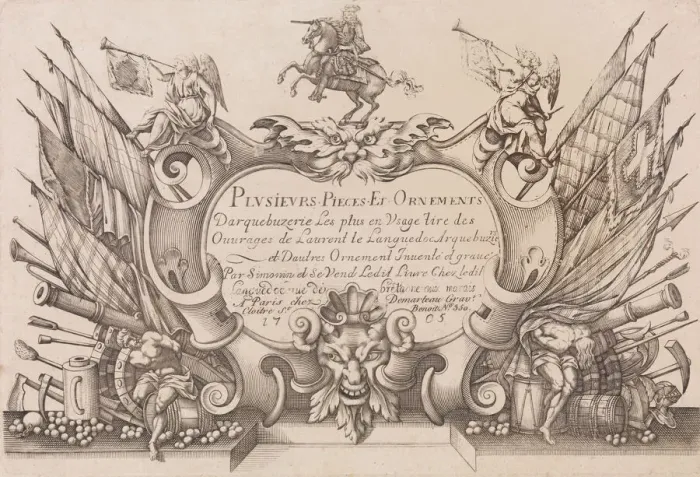 PLVSIEVRS · PIECES · ET · ORNEMENTS
Darquebuzerie Les plus en Vsage tire des
Ouurages de Laurent le Languedoc Arquebuzie
et Dautres Ornement Inuenté et graué
Par Simonin et Se Vend Ledit Liure Chez ledit
Languedoc rue de bretagne aux marais
A Paris chez Demarteau Grav.r
Cloitre S.t Benoit N.o 350.
1705